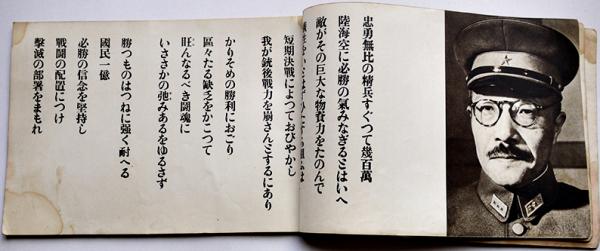 忠勇無比の精兵すぐつて幾百萬
陸海空に必勝の氣みなぎるとはいへ
敵がその巨大な物資力をたのんで
短期決戰によつておびやかし
我が銃後戰力を崩さんとするにあり
かりそめの勝利におごり
區々たる缺乏をかこつて
旺んなるべき鬪魂に
いささかの弛みあるをゆるさず
勝つものはつねに強く耐へる
國民一億
必勝の信念を堅持し
戰鬪の配置につけ
擊滅の部署をまもれ